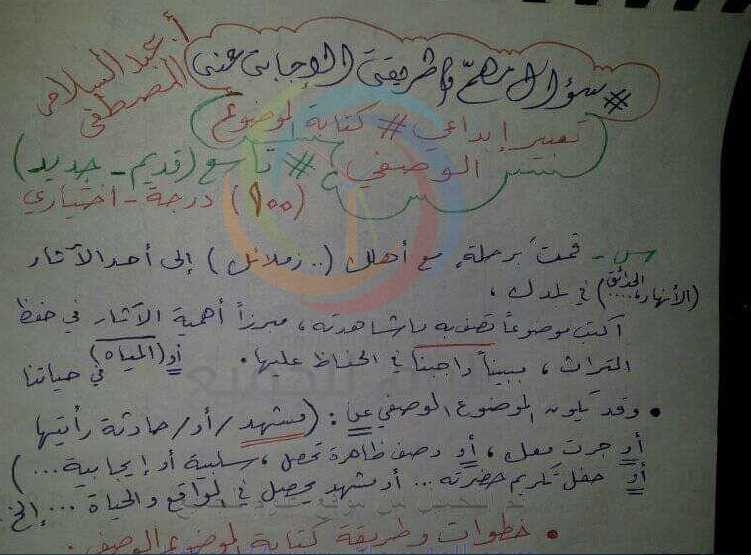 # سؤال مهمّ وطريقة الإجابة عنه
أ. عبد السلام
المصطفى
تعبير إبداعي # كتابة الموضوع
الوصفي # تاسع (قديم - جديد)
(١٠٠) درجة - اختياري
س - قمتَ برحلة مع أهلك (.. زملائك) إلى أحد الآثار
(الأنهار، الحدائق ....) في بلدك ،
اكتب موضوعاً تصف به ما شاهدته، مبرزاً أهمية الآثار في حفظ
التراث، مبيناً واجبنا في الحفاظ عليها. أو (المياه) في حياتنا
• وقد يكون الموضوع الوصفي عن : (مشهد / أو / حادثة رأيتها
أو جرت معك ، أو وصف ظاهرة تحصل ، سلبية أو إيجابية ... )
أو حفل تكريم حضرته ... أو مشهد يحصل في الواقع والحياة ... إلخ
• خطوات وطريقة كتابة الموضوع الوصفي .